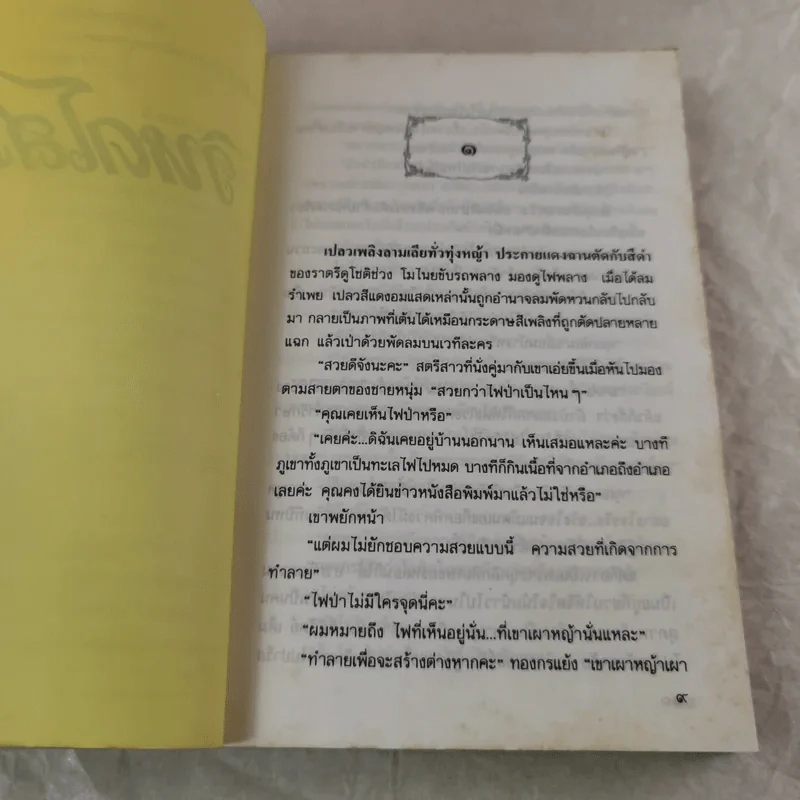 ๑
เปลวเพลิงลามเลียทั่วทุ่งหญ้า ประกายแดงฉานตัดกับสีดำ
ของราตรีดูโชติช่วง โมไนยขับรถพลาง มองดูไฟพลาง เมื่อได้ลม
รำเพย เปลวสีแดงอมแสดเหล่านั้นถูกอำนาจลมพัดหวนกลับไปกลับ
มา กลายเป็นภาพที่เต้นได้เหมือนกระดาษสีเพลิงที่ถูกตัดปลายหลาย
แฉก แล้วเป่าด้วยพัดลมบนเวทีละคร
“สวยดีจังนะคะ” สตรีสาวที่นั่งคู่มากับเขาเอ่ยขึ้นเมื่อหันไปมอง
ตามสายตาของชายหนุ่ม “สวยกว่าไฟป่าเป็นไหนๆ”
“คุณเคยเห็นไฟป่าหรือ”
“เคยค่ะ...ดิฉันเคยอยู่บ้านนอกนาน เห็นเสมอแหละค่ะ บางที
ภูเขาทั้งภูเขาเป็นทะเลไฟไปหมด บางทีก็กินเนื้อที่จากอำเภอถึงอำเภอ
เลยค่ะ คุณคงได้ยินข่าวหนังสือพิมพ์มาแล้วไม่ใช่หรือ”
เขาพยักหน้า
“แต่ผมไม่ยักชอบความสวยแบบนี้ ความสวยที่เกิดจากการ
ทำลาย”
“ไฟป่าไม่มีใครจุดนี่คะ”
“ผมหมายถึง ไฟที่เห็นอยู่นั่น...ที่เขาเผาหญ้านั่นแหละ”
“ทำลายเพื่อจะสร้างต่างหากคะ” ทองกรแย้ง “เขาเผาหญ้าเผา
๙